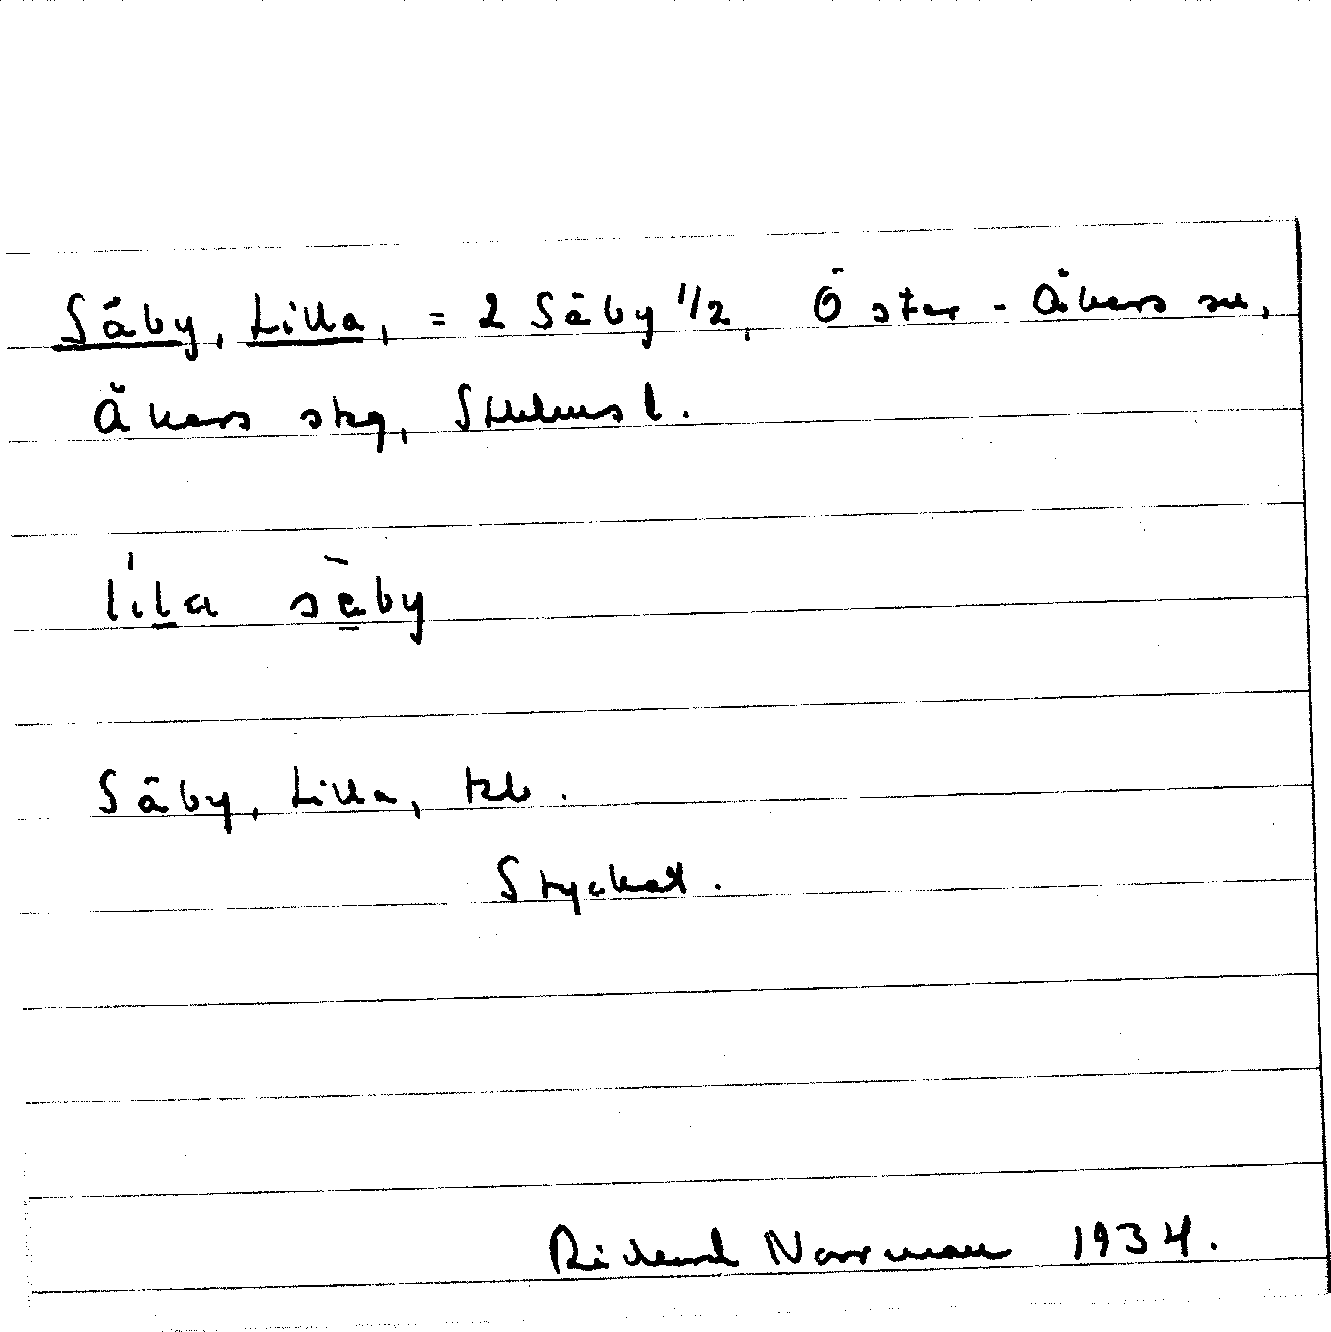 Säby, Lilla, = 2 Säby 1/2, Öster-Åkers sn,
Åkers skg, Sthlms l.
lila säby
Säby, Lilla, tkb.
Styckat.
Rickard Norrman 1934.